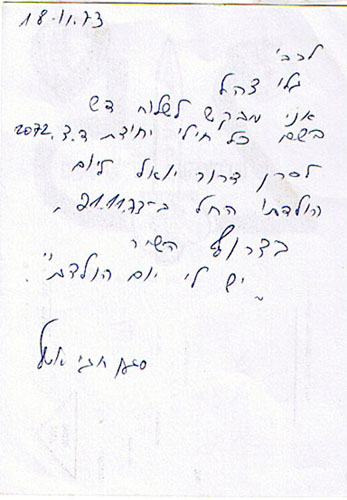 18.11.73
לכב'
גלי צהל
אני מבקש לשלוח דש
בשם כל חילי יחידת ד.צ. 2072
לסרן דרור יואל ליום
הולדתו החל ב-21.11.73,
בצרוף השיר
"יש לי יום הולדת".
סגן חגי